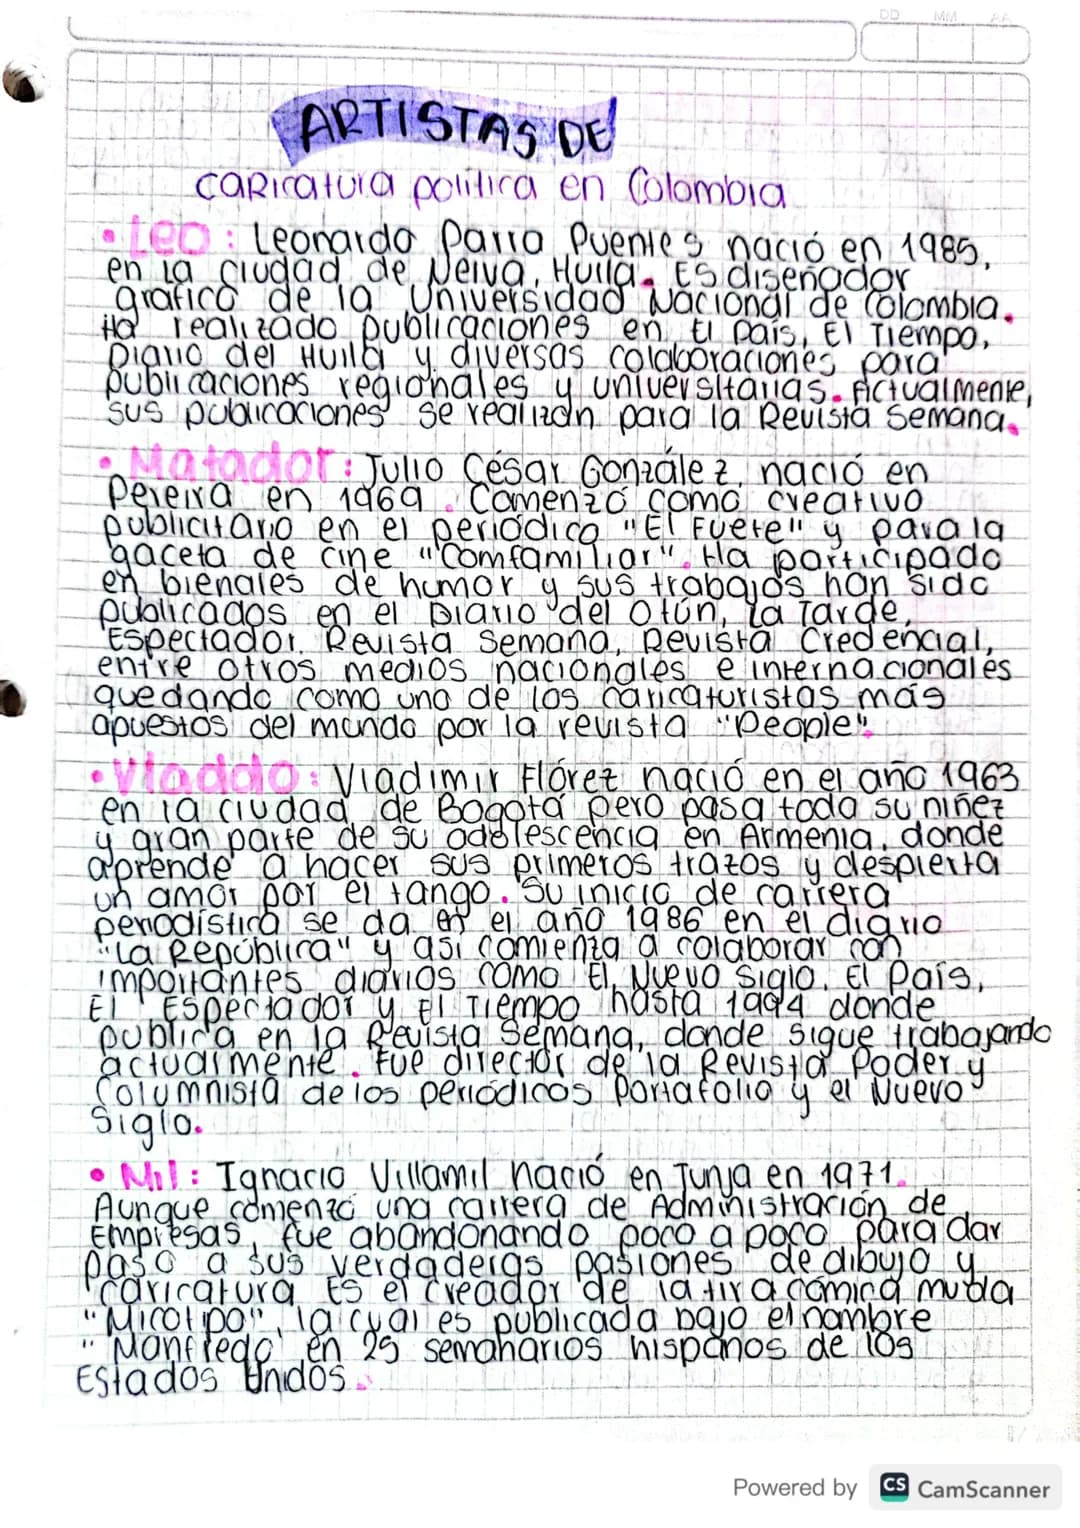 DD MM AA
ARTISTAS DE
caricatura política en Colombia
• Leo: Leonardo Parra Puentes nació en 1985,
en la ciudad de Neiva, Huila. Es diseñador
gráfico de la Universidad Nacional de Colombia.
Ha realizado publicaciones en El País, El Tiempo,
Diario del Huila y diversas colaboraciones para
publicaciones regionales y universitarias. Actualmente,
sus publicaciones se realizan para la Revista Semana.
• Matador: Julio César González, nació en
Pereira en 1969. Comenzó como creativo
publicitario en el periódico "El Fuete" y para la
gaceta de cine "Comfamiliar". Ha participado
en bienales de humor y sus trabajos han sido
publicados en el Diario del Otún, La Tarde,
Espectador, Revista Semana, Revista Credencial,
entre otros medios nacionales e internacionales
quedando como uno de los caricaturistas más
apuestos del mundo por la revista "People".
• Vladdo: Vladimir Flórez nació en el año 1963
en la ciudad de Bogotá pero pasa toda su niñez
y gran parte de su adolescencia en Armenia, donde
aprende a hacer sus primeros trazos y despierta
un amor por el tango. Su inicio de carrera
periodística se da en el año 1986 en el diario
"La República" y así comienza a colaborar con
importantes diarios como El Nuevo Siglo, El País,
El Espectador y El Tiempo hasta 1994 donde
publica en la Revista Semana, donde sigue trabajando
actualmente. Fue director de la Revista Poder y
Columnista de los periódicos Portafolio y el Nuevo
Siglo.
• Mil: Ignacio Villamil nació en Tunja en 1971.
Aunque comenzó una carrera de Administración de
Empresas, fue abandonando poco a poco para dar
paso a sus verdaderas pasiones de dibujo y
caricatura Es el creador de la tira cómica muda
"Micotipo", la cual es publicada bajo el nombre
"Manfredo" en 25 semanarios hispanos de los
Estados Unidos.
Powered by CS CamScanner